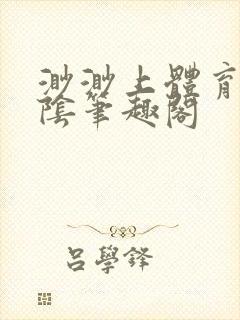 渺渺上體育
陰筆趣閣
呂學鋒